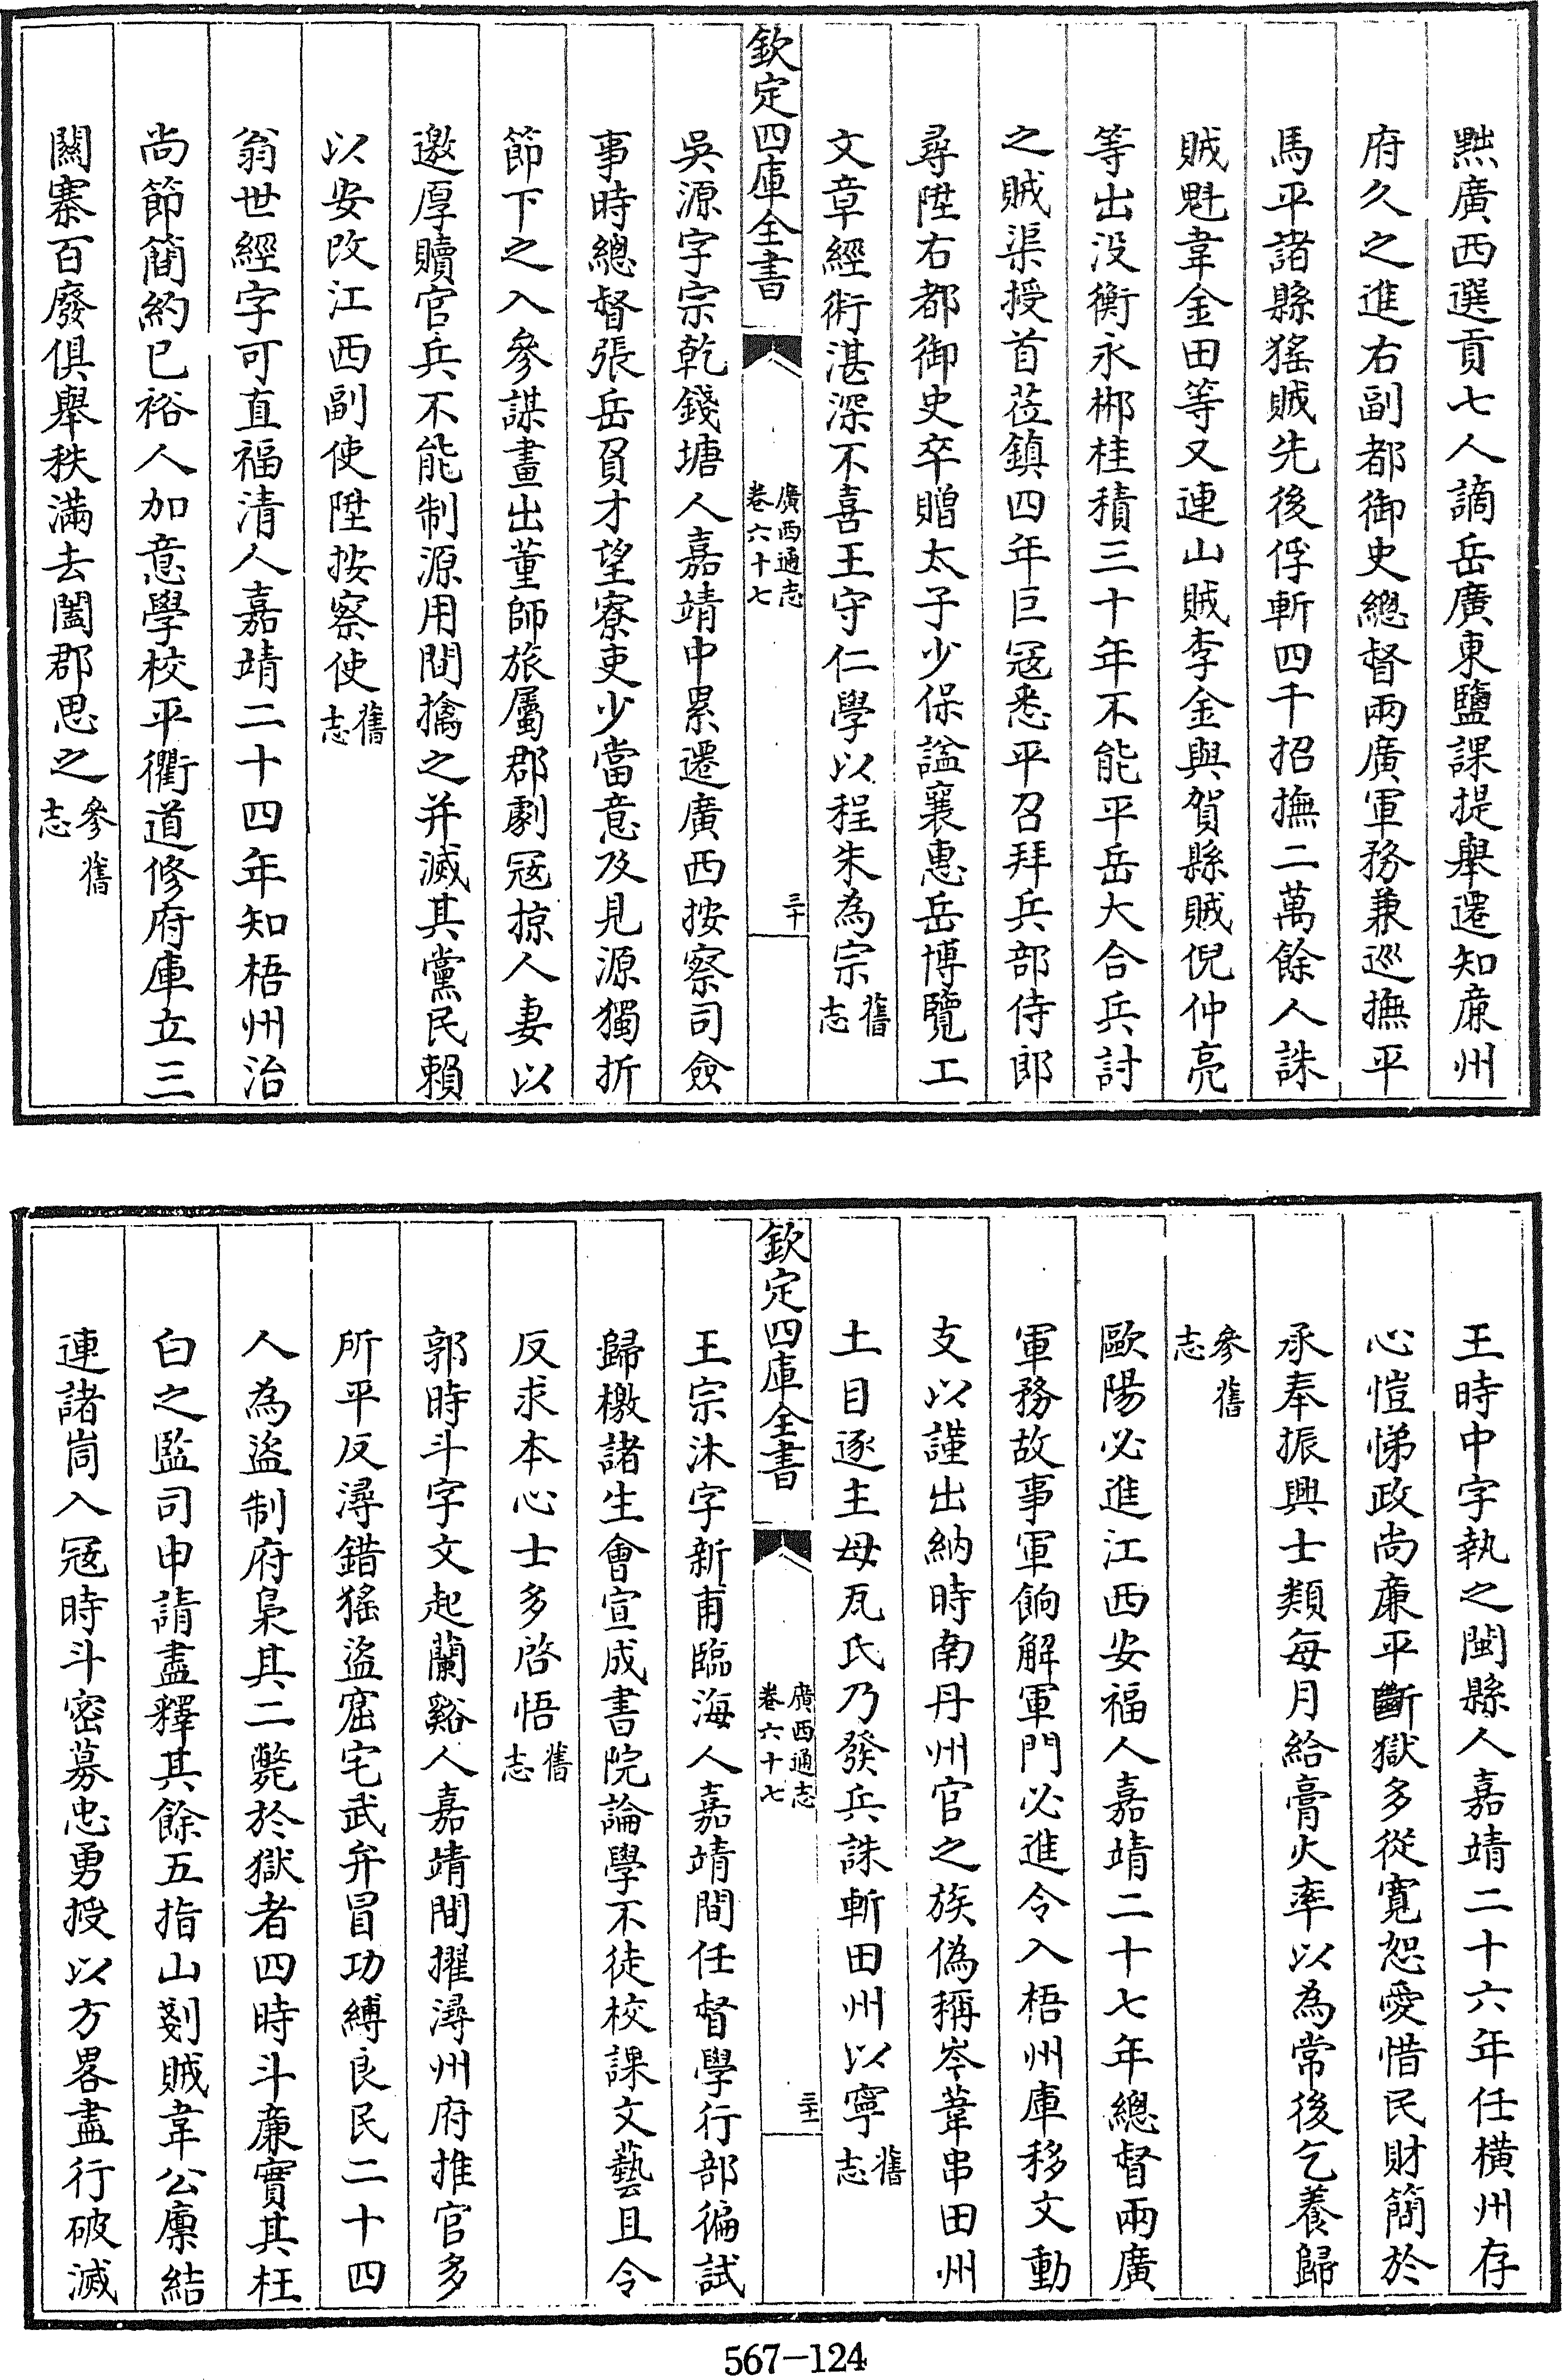 黜廣西選貢七人謫岳廣東鹽課提舉遷知亷州
府久之進右副都御史總督兩廣軍務兼巡撫平
馬平諸縣猺賊先後俘斬四千招撫二萬餘人誅
賊魁韋金田等又連山賊李金與賀縣賊倪仲亮
等出没衡永郴桂積三十年不能平岳大合兵討
之賊渠授首莅鎮四年巨冦悉平召拜兵部侍郎
尋陞右都御史卒贈太子少保諡襄惠岳博覽工
文章經術湛深不喜王守仁學以程朱為宗舊志
欽定四庫全書
廣西通志
卷六十七
三十
吳源字宗乾錢塘人嘉靖中累遷廣西按察司僉
事時總督張岳負才望寮吏少當意及見源獨折
節下之入參謀畫出董師旅屬郡劇冦掠人妻以
邀厚贖官兵不能制源用間擒之并滅其黨民賴
以安改江西副使陞按察使舊志
翁世經字可直福清人嘉靖二十四年知梧州治
尚節簡約已裕人加意學校平衢道修府庫立三
關寨百廢俱舉秩滿去闔郡思之參舊志
王時中字執之閩縣人嘉靖二十六年任橫州存
心愷悌政尚亷平斷獄多從寛恕愛惜民財簡於
承奉振興士類每月給膏火率以為常後乞養歸
參舊志
歐陽必進江西安福人嘉靖二十七年總督兩廣
軍務故事軍餉解軍門必進令入梧州庫移文動
支以謹出納時南丹州官之族偽稱岑葦串田州
土目逐主母瓦氏乃發兵誅斬田州以寧舊志
欽定四庫全書
廣西通志
卷六十七
三十一
王宗沐字新甫臨海人嘉靖間任督學行部徧試
歸檄諸生會宣成書院論學不徒校課文藝且令
反求本心士多啓悟舊志
郭時斗字文起蘭谿人嘉靖間擢潯州府推官多
所平反潯錯猺盜窟宅武弁冒功縛良民二十四
人為盜制府梟其二斃於獄者四時斗亷實其枉
白之監司申請盡釋其餘五指山剗賊韋公廪結
連諸峝入冦時斗密募忠勇授以方畧盡行破滅
567-124